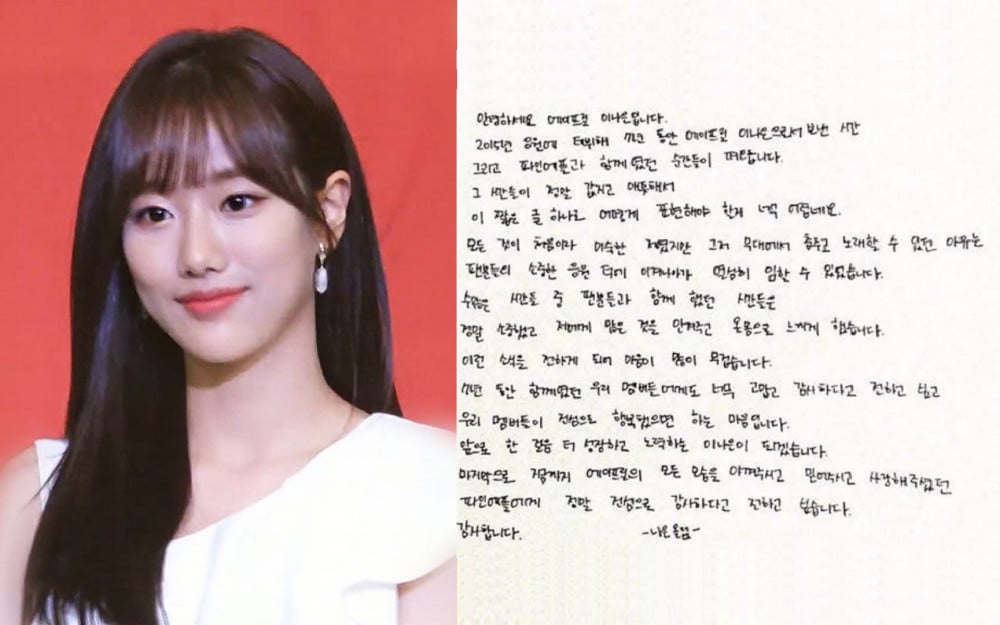 안녕하세요 에이프릴 이나은입니다.
2015년 응원에 데뷔해 7년 동안 에이프릴 이나은으로서 보낸 시간
그리고 파인애플과 함께 했던 순간들이 떠오릅니다.
그 시간들이 정말 값지고 애틋해서
이 짧은 글 하나로 어떻게 표현해야 할지 너무 어렵네요.
모든 것이 처음이라 미숙한 저였지만 그저 무대에서 춤추고 노래할 수 있던 이유는
팬분들의 소중한 응원 덕에 이겨나아가 열심히 임할 수 있었습니다.
수많은 시간들 중 팬분들과 함께 했던 시간들은
정말 소중했고 저에게 많은 것을 안겨주고 온몸으로 느끼게 했습니다.
이런 소식을 전하게 되어 마음이 많이 무겁습니다.
7년 동안 함께였던 우리 멤버들에게도 너무 고맙고 감사하다고 전하고 싶고
우리 멤버들이 진심으로 행복했으면 하는 마음입니다.
앞으로 한 걸음 더 성장하고 노력하는 이나은이 되겠습니다.
마지막으로 지금까지 에이프릴의 모든 모습을 아껴주시고 믿어주시고 사랑해주셨던
파인애플에게 정말 진심으로 감사하다고 전하고 싶습니다.
감사합니다. -나은올림-